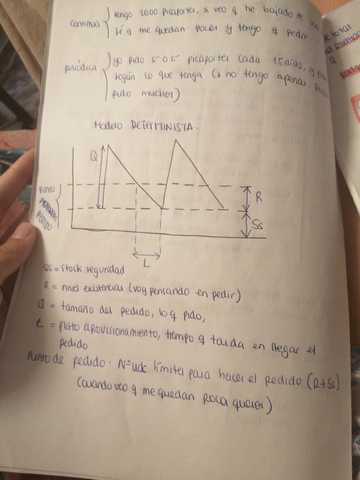 continua { tengo 1000 picaportes, si veo q he bajado de
si q me quedan pocos y tengo q pedir
periódica { yo pido 505 picaportes cada 15 días, y
según lo que tenga (si no tengo apenas,
pido mucho)
Modelo DETERMINISTA.
Q
PUNTO
PEDIDO
R
Ss
L
Ss = Stock seguridad
R = nivel existencias (voy pensando en pedir)
Q = tamaño del pedido, lo q pido,
L = plazo aprovisionamiento, tiempo q tarda en llegar el
pedido
Punto de pedido: Nº uds límite para hacer el pedido (R+Ss)
(cuando veo q me quedan poca)